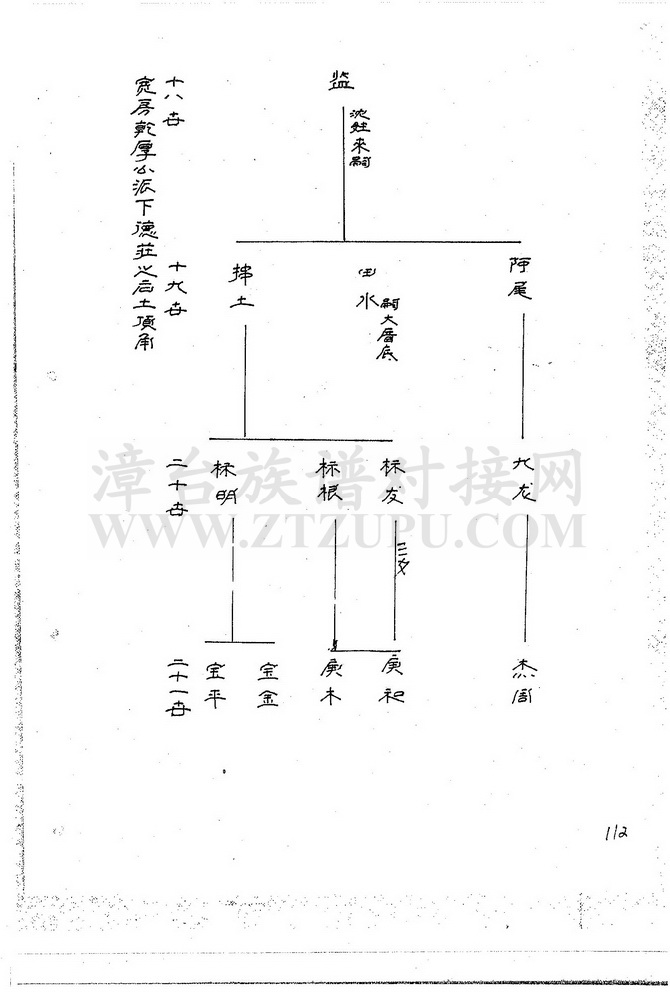 十八世
宽房乾厚公派下德莊之后土頂角
监
沈姓来嗣
十九世
阿尾
田水
嗣大厝底
土
二十世
九龙
标友
三女
标根
标明
二十一世
杰
庚和
庚木
宝金
宝平
漳台族谱对接网
WWW.ZTZUPU.COM
112